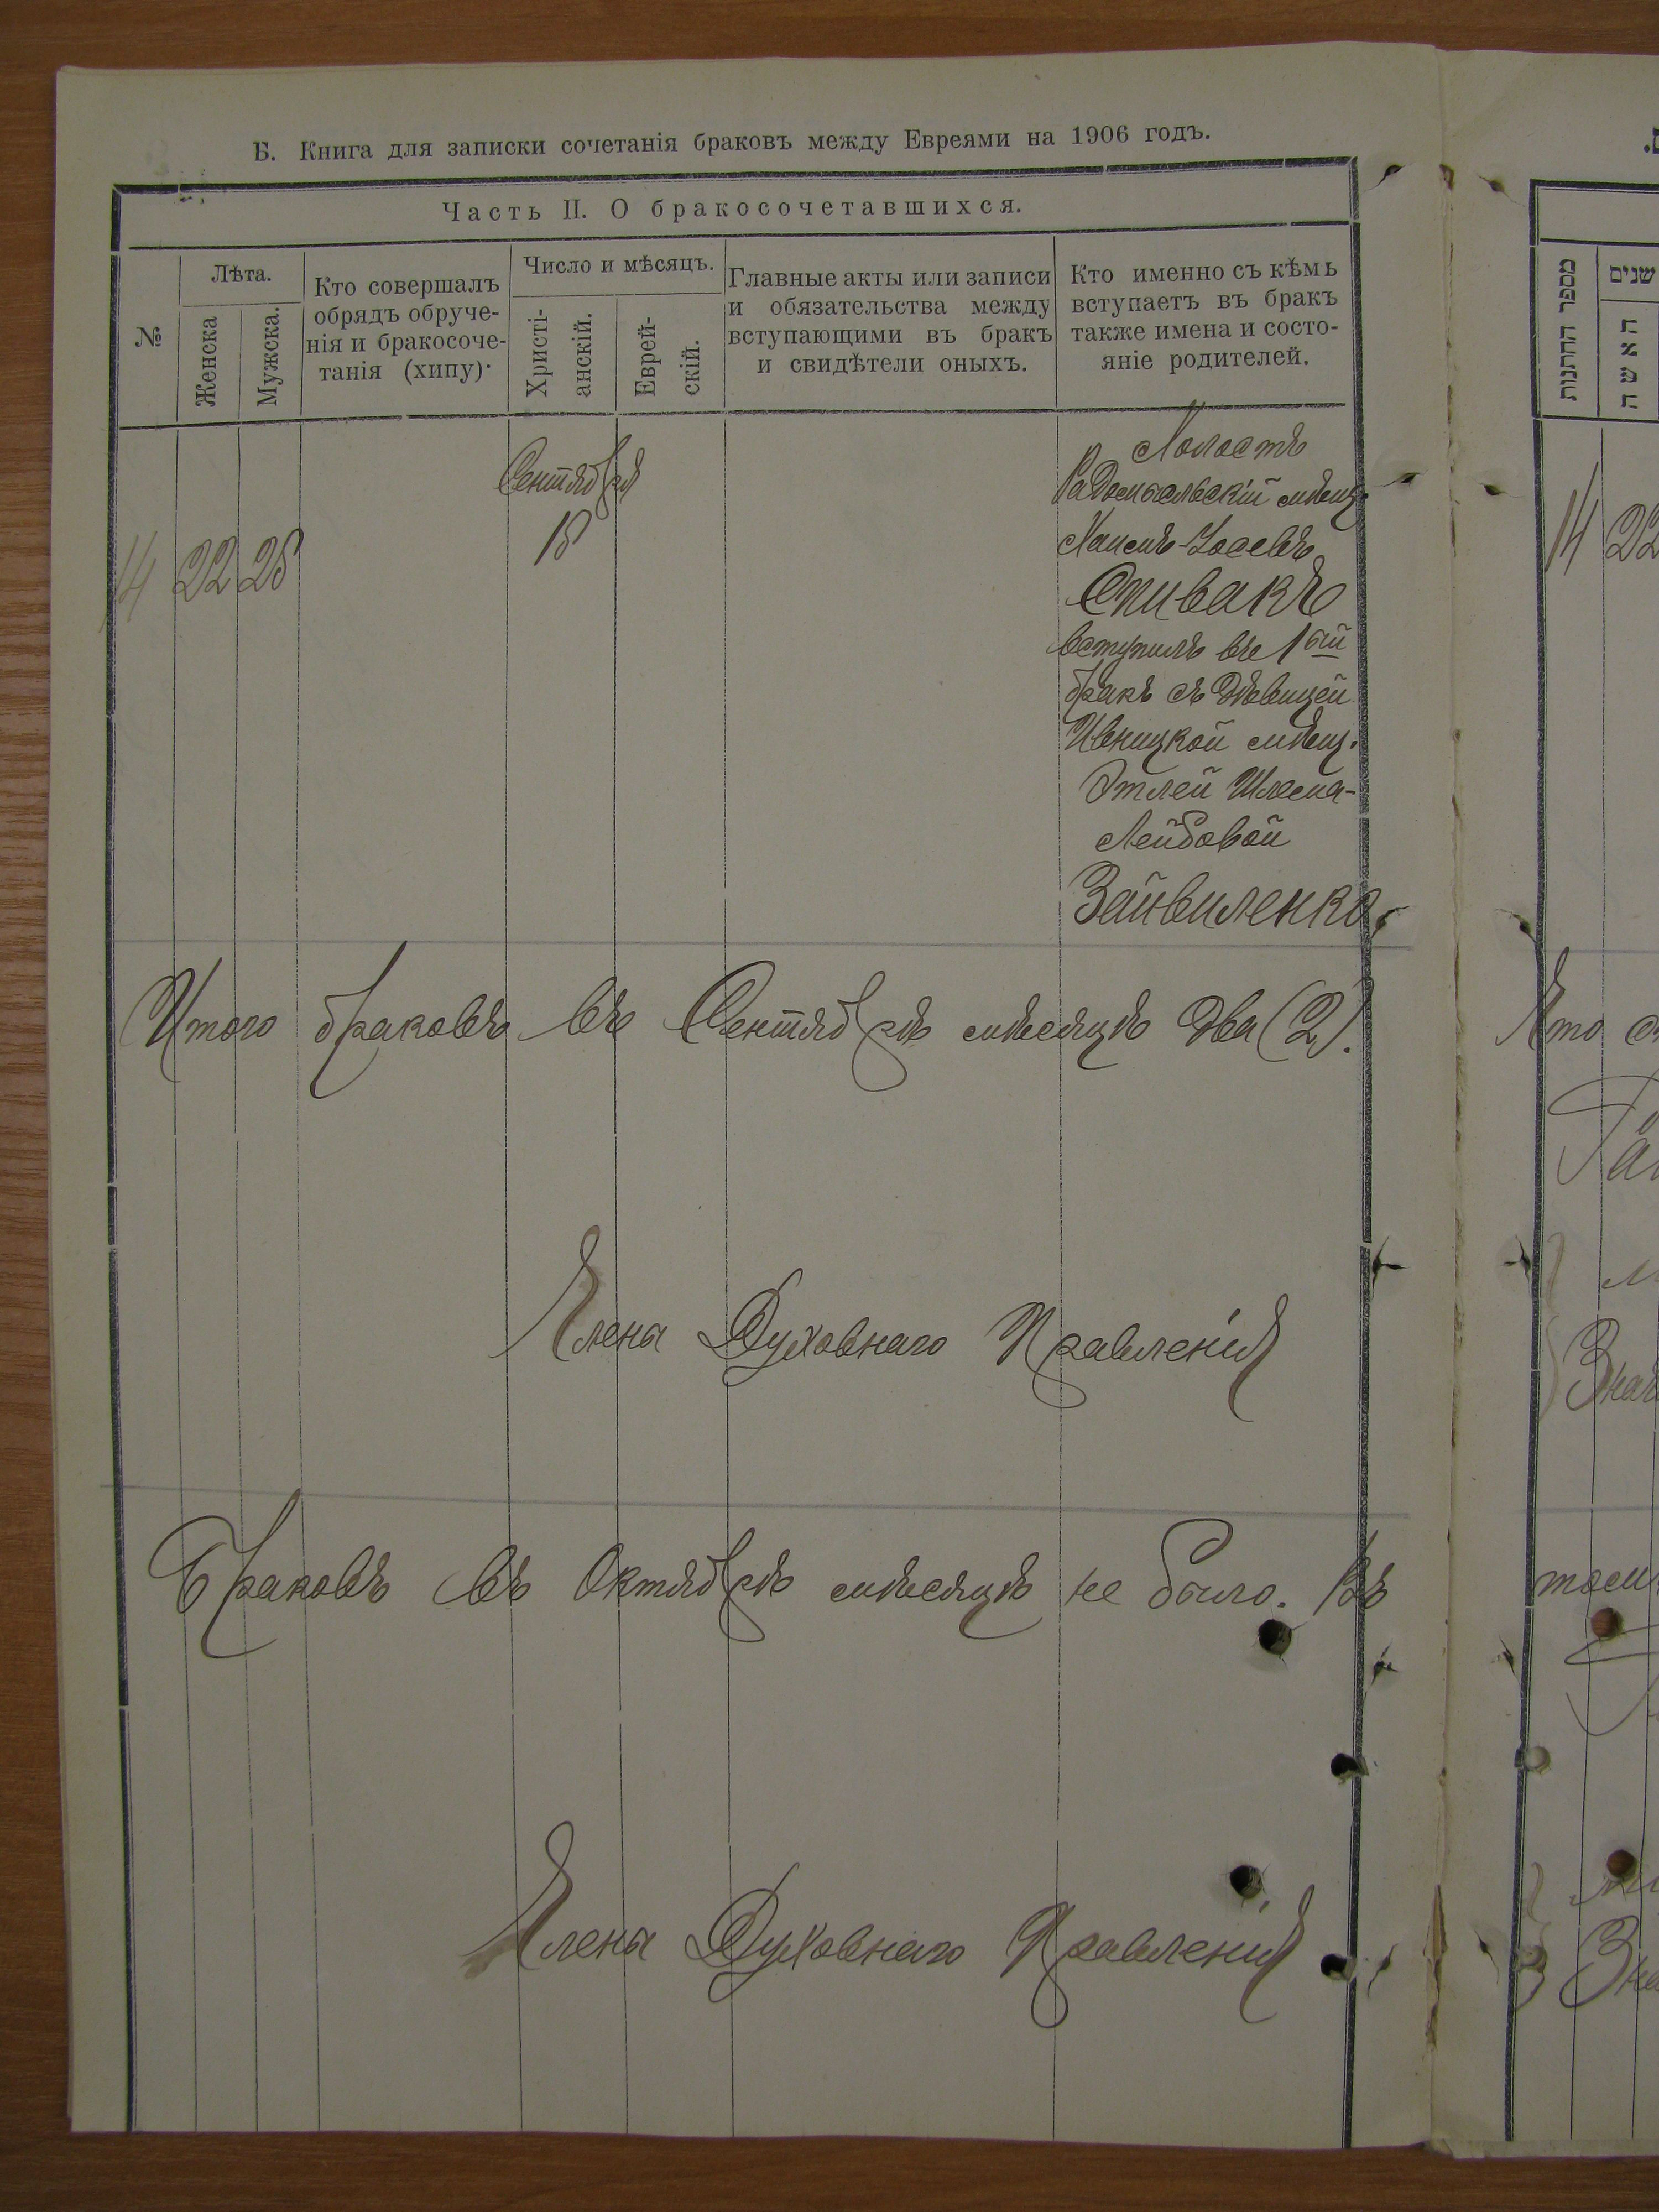 Б. Книга для записки сочетанія браковъ между Евреями на 1906 годъ.
Часть II. О бракосочетавшихся.
№
Лѣта.
Женска
Мужска.
Кто совершалъ
обрядъ обруче-
нія и бракосоче-
танія (хипу).
Число и мѣсяцъ.
Христі-
анскій.
Еврей-
скій.
Главные акты или записи
и обязательства между
вступающими въ бракъ
и свидѣтели оныхъ.
Кто именно съ кѣмъ
вступаетъ въ бракъ
также имена и состо-
яніе родителей.
14
22
25
Сентября
15
Холостъ
Радомысльскій мѣщ.
Хаимъ-Іосевъ
Спивакъ
вступилъ въ 1ый
бракъ съ дѣвицей
Ивницкой мѣщ.
Этлей Шлема-
Лейбовой
Зайвиленко
Итого браковъ въ Сентябрѣ мѣсяцѣ два (2).
Члена Духовнаго Правленія
Браковъ въ Октябрѣ мѣсяцѣ не было. Въ
Члена Духовнаго Правленія
מספר החתונות
שנים
האשה
14
22
Что
томъ